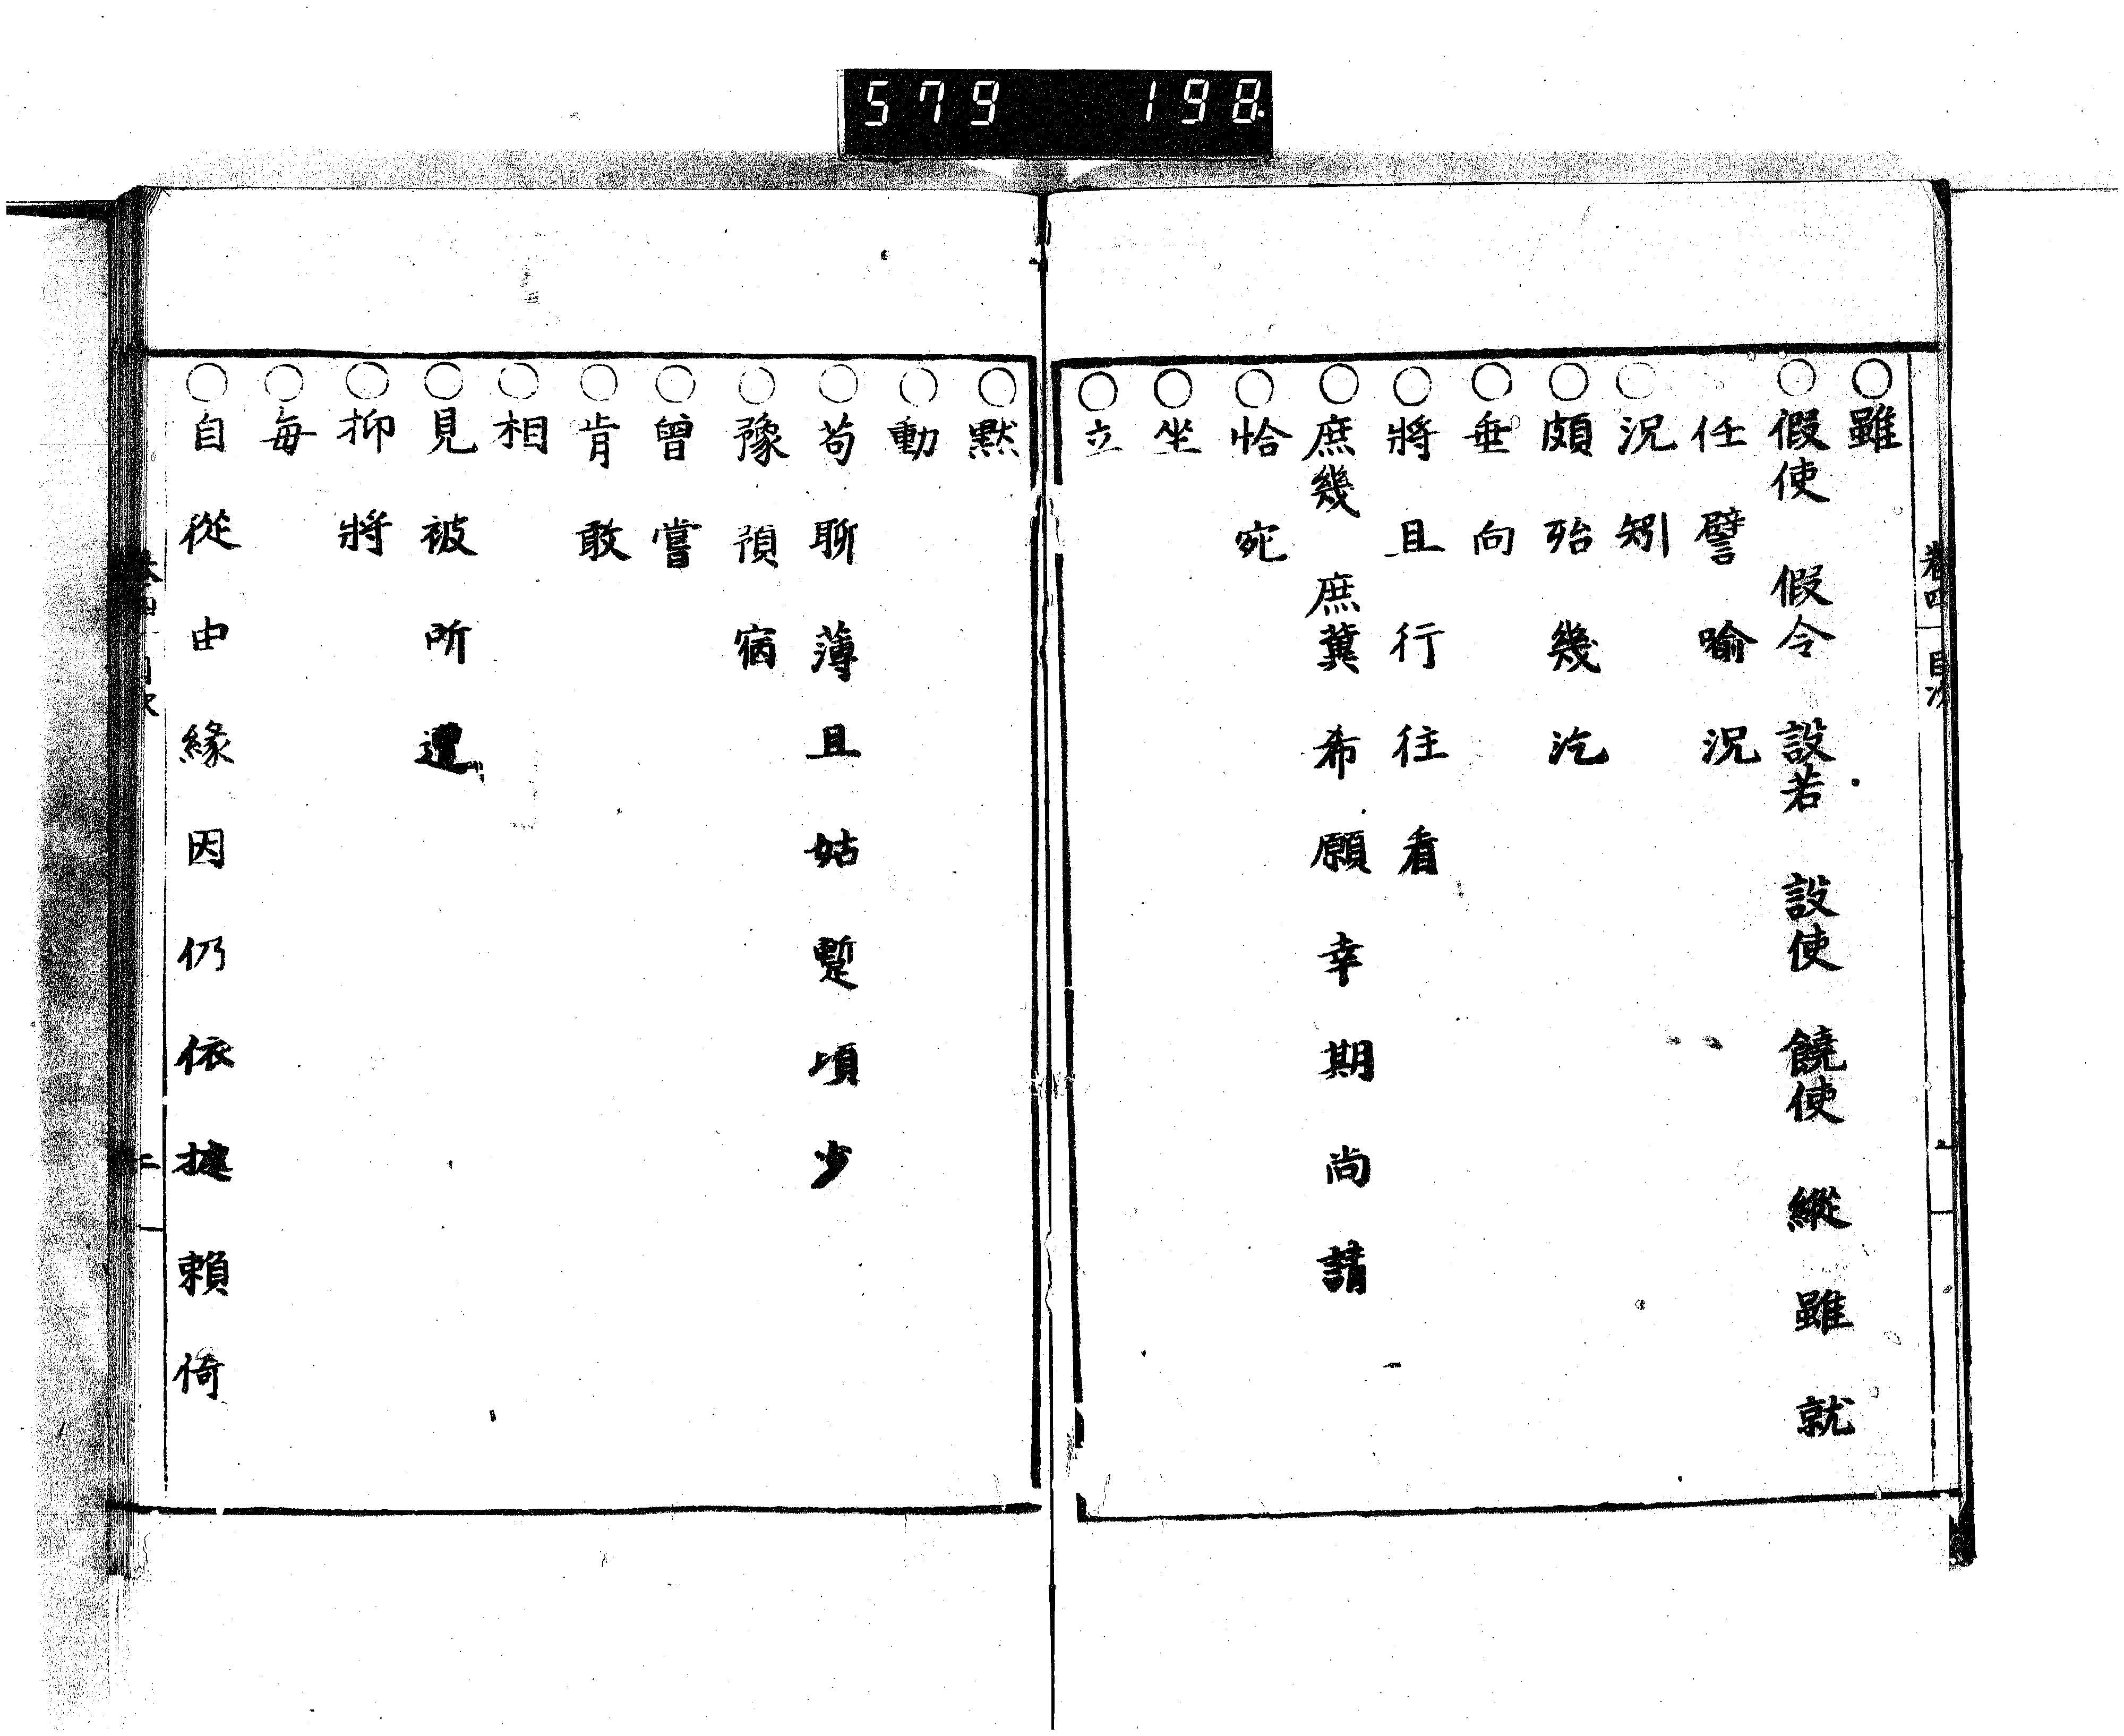 579 198
卷四 目次
○雖
○假使 假令 設若 設使 饒使 縱 雖 就
任 譬 喻 況
○況 矧
○頗 殆 幾 汔
○垂 向
○將 且 行 往 看
○庶幾 庶冀 希 願 幸 期 尚 請
○恰 宛
○坐
○立
○默
○動
○苟 聊 薄 且 姑 蹔 頃 少
○豫 預 宿
○曾 嘗
○肯 敢
○相
○見 被 所 遭
○抑 將
○每
○自 從 由 緣 因 仍 依 據 賴 倚
二